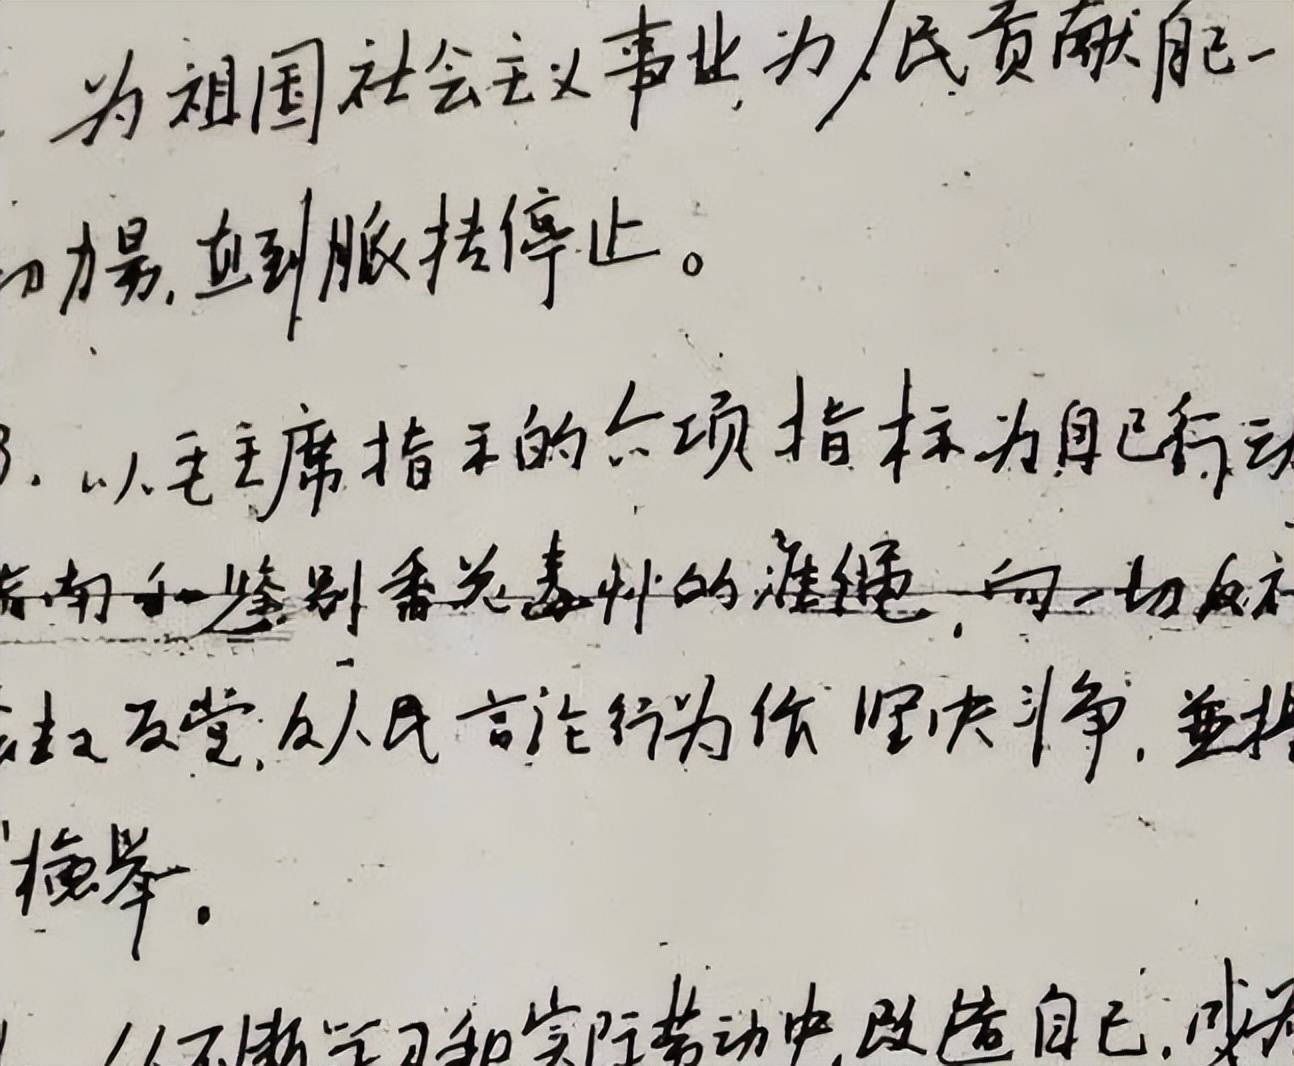 为祖国社会主义事业,为人民贡献自己一
切力量,直到脈搏停止。
3. 以毛主席指示的六项指标为自己行动
指南和鉴别香花毒草的准绳,向一切反社
会主义反党,反人民言论行为作坚决斗争,並
检举。
从不断学习和实际劳动中,改造自己,成为